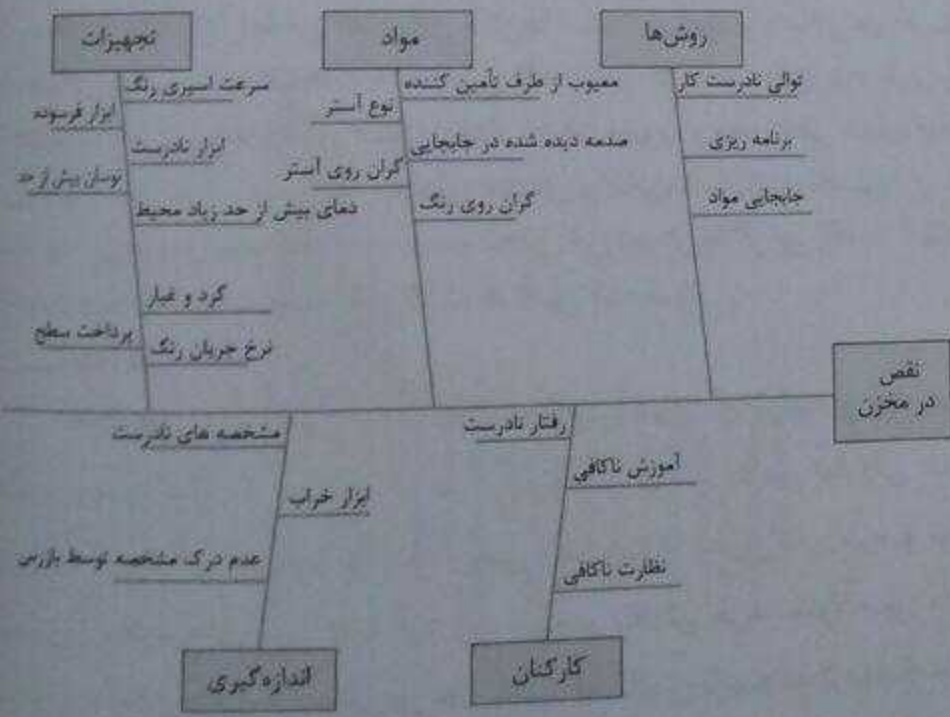 روش‌ها
توالی نادرست کار
برنامه ریزی
جابجایی مواد
مواد
معیوب از طرف تأمین کننده
نوع آستر
صدمه دیده شده در جابجایی
گران روی آستر
گران روی رنگ
تجهیزات
سرعت اسپری رنگ
ابزار فرسوده
ابزار نادرست
نوسان بیش از حد
دمای بیش از حد زیاد محیط
گرد و غبار
پرداخت سطح
نرخ جریان رنگ
نقص
در مخزن
رفتار نادرست
آموزش ناکافی
نظارت ناکافی
کارکنان
مشخصه های نادرست
ابزار خراب
عدم درک مشخصه توسط بازرس
اندازه‌گیری